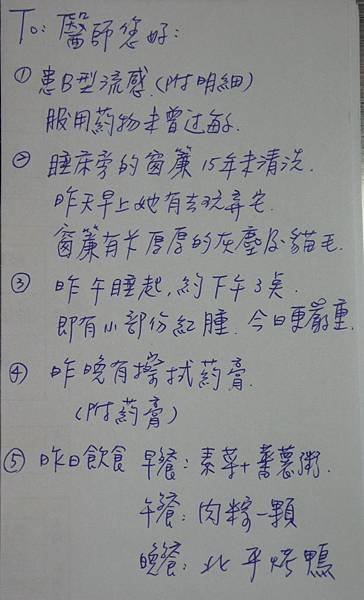 To: 醫師您好:
① 患B型流感.(附明細)
服用药物未曾过敏.
② 睡床旁的窗簾15年未清洗.
昨天早上她有去玩弄它.
窗簾有卡厚厚的灰塵及貓毛.
③ 昨午睡起,約下午3点.
即有小部份紅腫.今日更嚴重.
④ 昨晚有擦拭药膏.
(附药膏)
⑤ 昨日飲食 早餐: 素菜+蕃薯粥.
午餐: 肉粽一顆
晚餐: 北平烤鴨